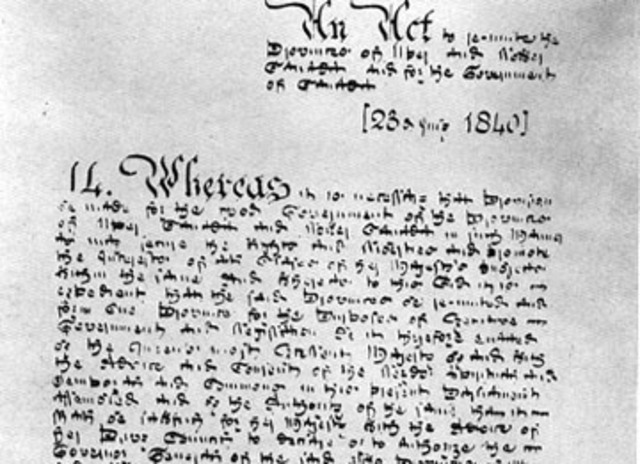 An Act to re-unite the
Provinces of Upper and Lower
Canada and for the Government
of Canada
[23d July 1840]
14. Whereas it is necessary that Provision
be made for the good Government of the Provinces
of Upper Canada and Lower Canada in such Manner
as may secure the Rights and Liberties and promote
the Interests of all Classes of Her Majesty's Subjects
within the same And Whereas to this End it is
expedient that the said Provinces be re-united and
form One Province for the Purposes of Executive
Government and Legislation Be it therefore enacted
by the Queen's most Excellent Majesty by and with
the Advice and Consent of the Lords Spiritual and
Temporal and Commons in this present Parliament
assembled and by the Authority of the same that it
shall be lawful for Her Majesty with the Advice of
Her Privy Council to declare or to authorize the
Governor General of the said